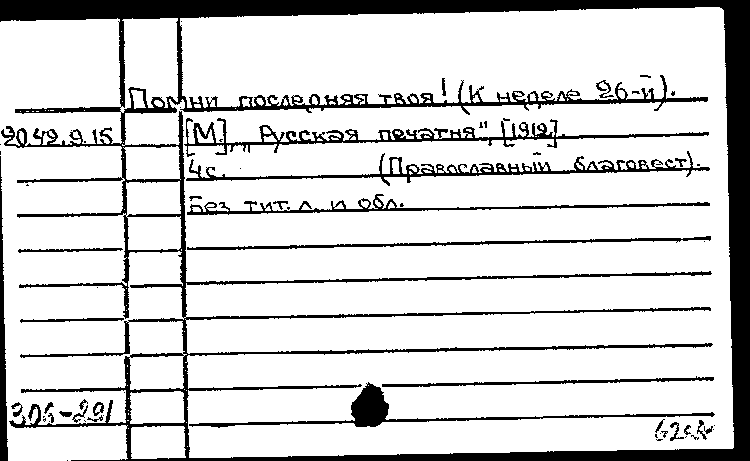 Помни последняя твоя! (К неделе 26-й).
20.42.9.15 [М], „Русская печатня", [1912].
4с. (Православный благовест).
Без тит. л. и обл.
306-291